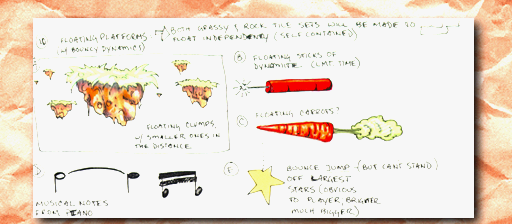 FLOATING PLATFORMS
W/ BOUNCY DYNAMICS)
BOTH GRASSY & ROCK TILE SETS WILL BE MADE TO
FLOAT INDEPENDENTLY (SELF CONTAINED)
B FLOATING STICKS OF
DYNAMITE. (LMT TIME)
C FLOATING CARROTS?
FLOATING CLUMPS
W/ SMALLER ONES IN
THE DISTANCE.
MUSICAL NOTES
FROM PIANO
E BOUNCE JUMP (BUT CAN'T STAND)
OFF LARGEST
STARS (OBVIOUS
TO PLAYER, BRIGHTER
MUCH BIGGER)